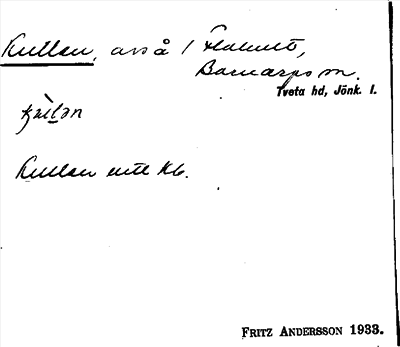 Kullen, avs å 1 Flahult,
Barnarps sn.
Tveta hd, Jönk. l.
Kullen enl kb.
FRITZ ANDERSSON 1933.